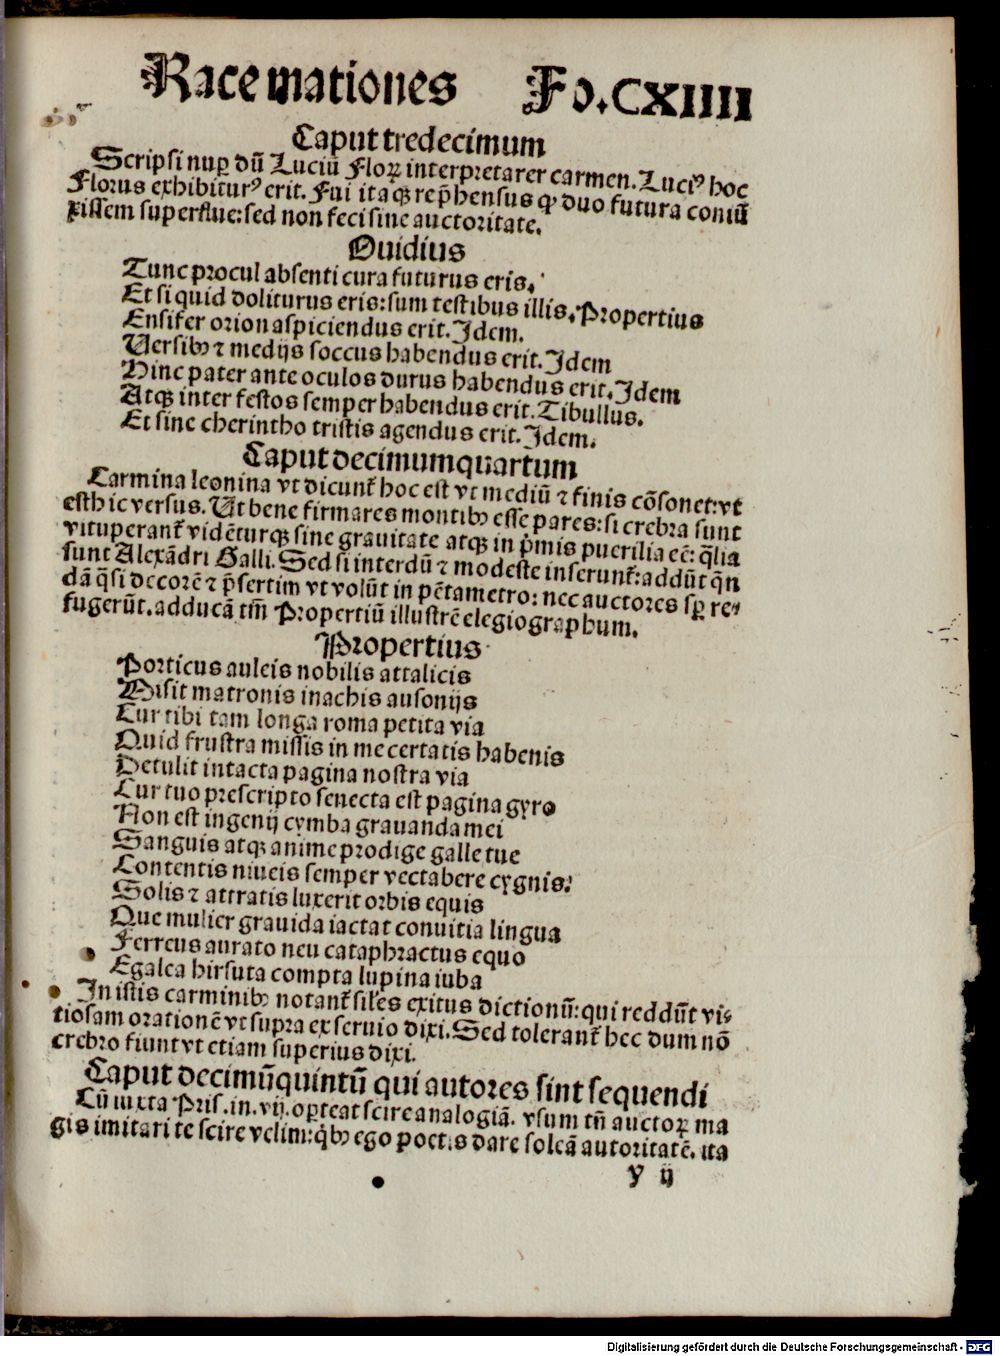 Racemationes Fo.CXIIII
Caput tredecimum
Scripsi nuꝑ dũ Luciũ Florꝝ interpretarer carmen. Luciꝰ hoc
Florus exhibiturꝰ erit. Fui itaqꝫ rep̃hensus ꝙ duo futura coniũ
xissem superflue: sed non feci sine auctoritate.
Ouidius
Tunc procul absenti cura futurus eris.
Et si quid doliturus eris: sum testibus illis. Propertius
Ensifer orion aspiciendus erit. Idem.
Uersibꝫ ⁊ medijs soccus habendus erit. Idem
Hinc pater ante oculos durus habendus erit. Idem
Atqꝫ inter festos semper habendus erit. Tibullus.
Et sine cherintho tristis agendus erit. Idem.
Caput decimumquartum
Carmina leonina vt dicunt̃ hoc est vt mediũ ⁊ finis cõsonet: vt
est hic versus. Ut bene firmares montibꝫ esse pares: si crebra sunt
vituperant̃ vidẽturqꝫ sine grauitate atqꝫ in p̃mis puerilia eẽ: q̃lia
sunt Alexãdri Galli. Sed si interdũ ⁊ modeste inserunt̃: addũt q̃n
dã q̃si decorẽ ⁊ p̃sertim vt volũt in pẽtametro: nec auctores sꝑ re⸗
fugerũt. adducã tm̃ Propertiũ illustrẽ elegiographum.
Propertius
Porticus auleis nobilis attalicis
Misit matronis inachis ausonijs
Cur tibi tam longa roma petita via
Quid frustra missis in me certatis habenis
Detulit intacta pagina nostra via
Cur tuo prescripto seuecta est pagina gyro
Non est ingenij cymba grauanda mei
Sanguis atqꝫ anime prodige galle tue
Contentis niueis semper vectabere cygnis:
Solis ⁊ attratis luxerit orbis equis
Que mulier grauida iactat conuitia lingua
Ferreus aurato neu cataphractus equo
Egalea hirsuta compta lupina iuba
In istis carminibꝫ notant̃ sil̃es exitus dictionũ: qui reddũt vi⸗
tiosam orationẽ vt supra ex seruio dixi. Sed tolerant̃ hec dum nõ
crebro fiunt vt etiam superius dixi.
Caput decimũquintũ qui autores sint sequendi
Cũ iuxta Pris. in. vij. oꝑteat scire analogiã. vsum tñ auctorꝝ ma
gis imitari te scire velim: q̃bꝫ ego poetis dare soleã autoritatẽ. ita
y ij
Digitalisierung gefördert durch die Deutsche Forschungsgemeinschaft - DFG